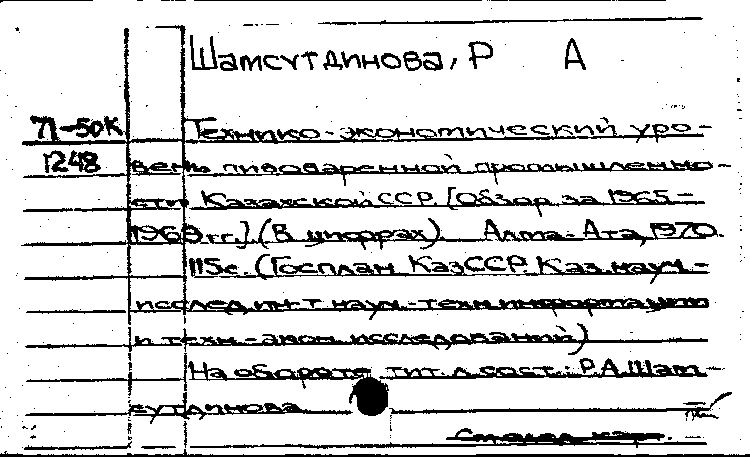 Шамсутдинова, Р А
71-50К Технико-экономический уро-
1248 вень пивоваренной промышленно-
сти Казахской ССР. [Обзор за 1965-
1968 гг.] (В цифрах). Алма-Ата, 1970.
115с. (Госплан КазССР. Каз. науч.-
исслед. ин-т науч.-техн. информации
и техн.-экон. исследований)
На обороте тит. л. сост.: Р.А. Шам-
сутдинова